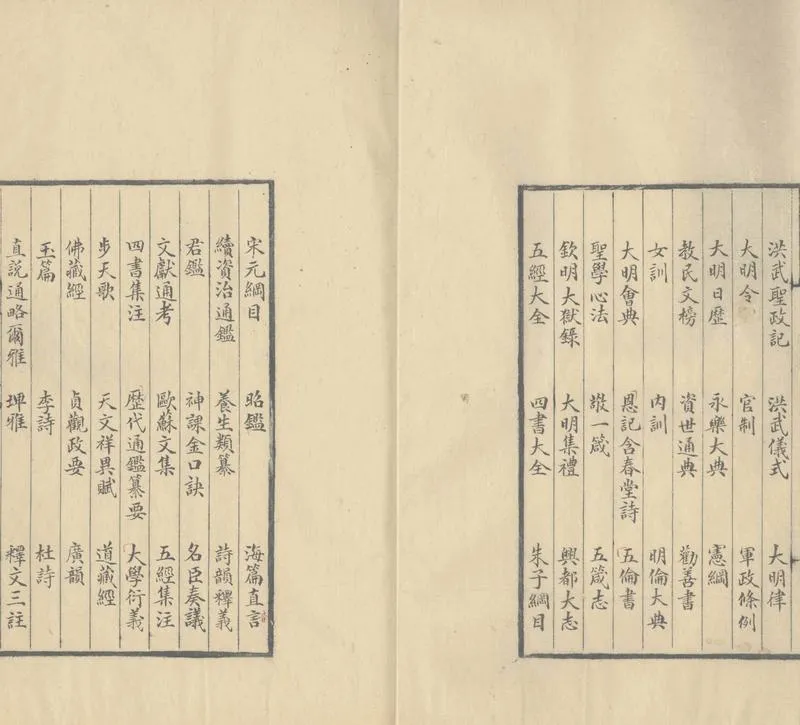 洪武聖政記 洪武儀式 大明律
大明令 官制 軍政條例
大明日歷 永樂大典 憲綱
教民文榜 資世通典 勸善書
女訓 內訓 明倫大典
大明會典 恩記含春堂詩 五倫書
聖學心法 敬一箴 五箴志
欽明大獄錄 大明集禮 興都大志
五經大全 四書大全 朱子綱目
宋元綱目 昭鑑 海篇直言
續資治通鑑 養生類纂 詩韻釋義
君鑑 神課金口訣 名臣奏議
文獻通考 歐蘇文集 五經集注
四書集注 歷代通鑑纂要 大學衍義
步天歌 天文祥異賦 道藏經
佛藏經 貞觀政要 廣韻
玉篇 李詩 杜詩
直說通略爾雅 埤雅 釋文三註